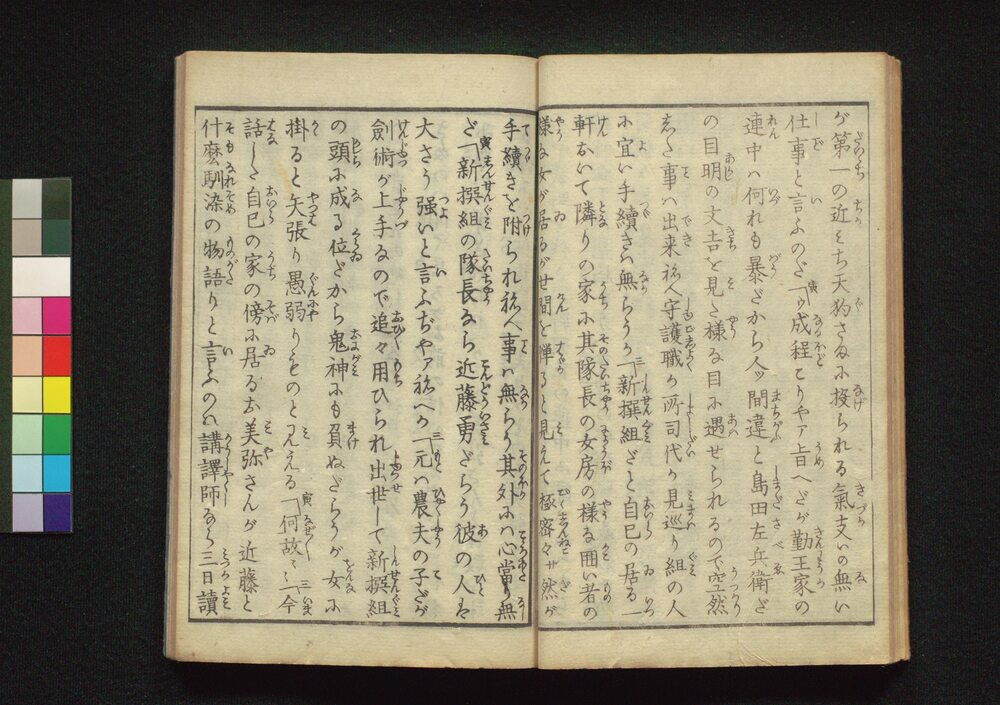 が第一の近みち天狗さねに接られる氣支いの無い
仕事と言ふのだ寅「ゥ成程こりやア旨へだが勤王家の
連中ハ何れも暴だから人ッ間違と島田左兵衛だ
の目明の文吉を見た様な目に遇せられるので空然
した事ハ出来ねへ守護職か所司代か見巡り組の人
に宜い手續きハ無らうか三「新撰組だと自己の居る一
軒おいて隣りの家に其隊長の女房の様な囲い者の
様な女が居るがせ間を憚ると見えて極密々サ然が
手續きを附られねへ事ハ無らう其外にハ心當り無
ど寅「新撰組の隊長なら近藤勇だらう彼の人は
大さう強いと言ふぢやアねへか三「元ハ農夫の子だが
劍術が上手なので追々用ひられ出世して新撰組
の頭に成る位だから鬼神にも負ぬだらうが女に
掛ると矢張り愚弱りものと見える寅「何故〱三「今
話した自己の家の傍に居るお美弥さんが近藤と
什麼馴染の物語りと言ふのハ講譯師なら三日讀